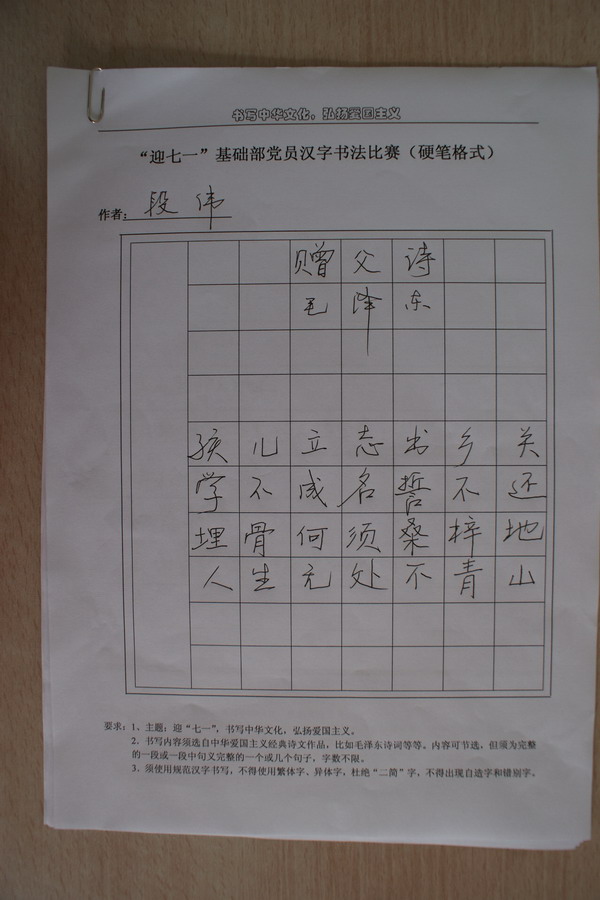 书写中华文化，弘扬爱国主义
“迎七一”基础部党员汉字书法比赛（硬笔格式）
作者：段伟
赠父诗
毛泽东
孩儿立志书乡关
学不成名誓不还
埋骨何须桑梓地
人生无处不青山
要求：1、主题：迎“七一”，书写中华文化，弘扬爱国主义。
2、书写内容须选自中华爱国主义经典诗文作品，比如毛泽东诗词等等。内容可节选，但须为完整
的一段或一段中句义完整的一个或几个句子，字数不限。
3、须使用规范汉字书写，不得使用繁体字、异体字，杜绝“二简”字，不得出现自造字和错别字。